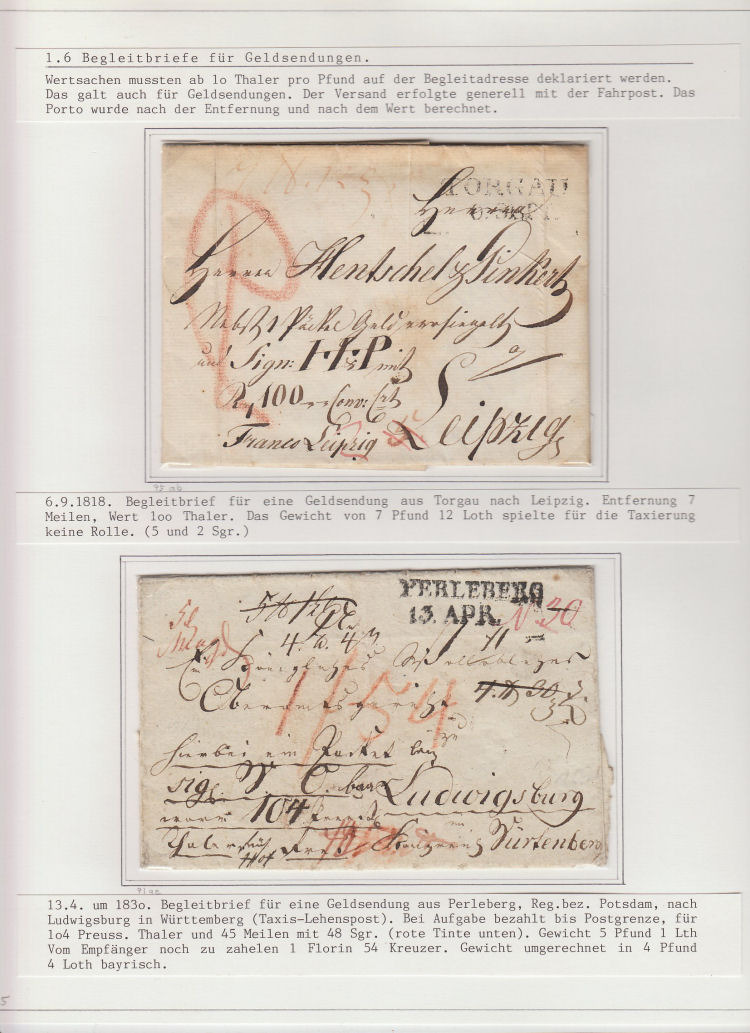 1.6 Begleitbriefe für Geldsendungen.
Wertsachen mussten ab 1o Thaler pro Pfund auf der Begleitadresse deklariert werden.
Das galt auch für Geldsendungen. Der Versand erfolgte generell mit der Fahrpost. Das
Porto wurde nach der Entfernung und nach dem Wert berechnet.
TORGAU
Herren Hentschel & Pinkert
Nebst 1 Päckel Geld versiegelt
und Sign: H&P mit
R 100 Conv: Crt
Franco Leipzig
Leipzig
6.9.1818. Begleitbrief für eine Geldsendung aus Torgau nach Leipzig. Entfernung 7
Meilen, Wert 1oo Thaler. Das Gewicht von 7 Pfund 12 Loth spielte für die Taxierung
keine Rolle. (5 und 2 Sgr.)
PERLEBERG
13. APR.
No 20
1 f 54
Oberamtsgericht
hierbei ein Packet
sig.
Ludwigsburg
worin 104
Thaler
Würtenberg
13.4. um 183o. Begleitbrief für eine Geldsendung aus Perleberg, Reg.bez. Potsdam, nach
Ludwigsburg in Württemberg (Taxis-Lehenspost). Bei Aufgabe bezahlt bis Postgrenze, für
1o4 Preuss. Thaler und 45 Meilen mit 48 Sgr. (rote Tinte unten). Gewicht 5 Pfund 1 Lth
Vom Empfänger noch zu zahelen 1 Florin 54 Kreuzer. Gewicht umgerechnet in 4 Pfund
4 Loth bayrisch.